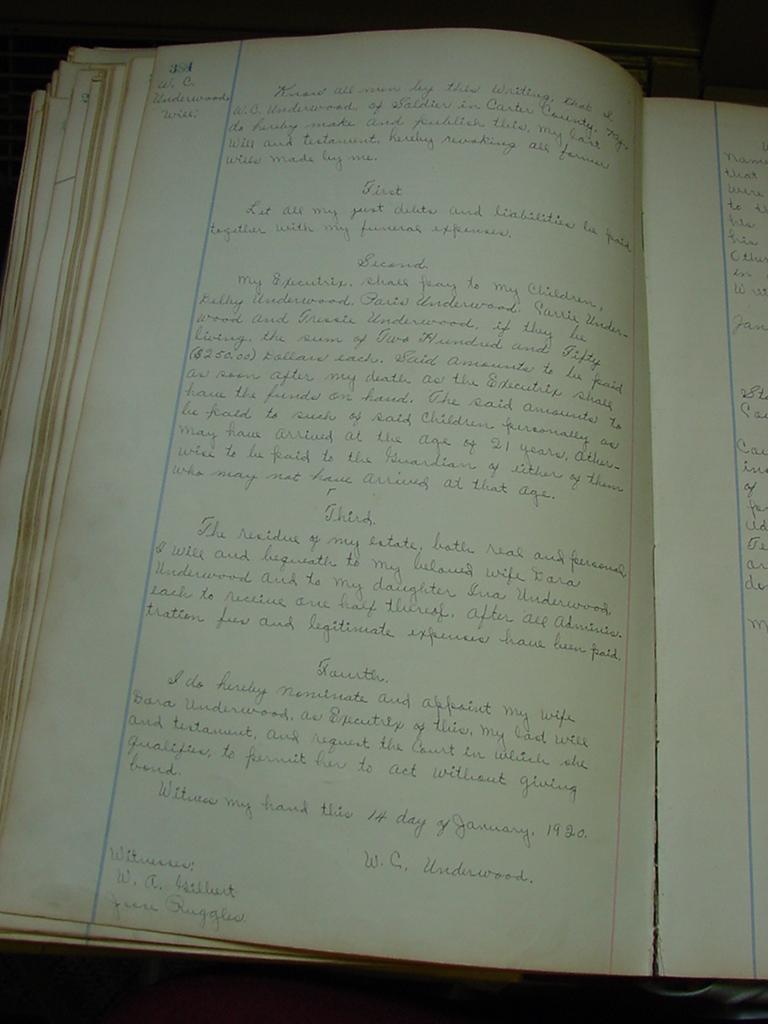 384
W. C.
Underwood
Will:
Know all men by this Writing, that I
W. C. Underwood, of Soldier in Carter County, Ky.
do hereby make and publish this, my last
Will and testament, hereby revoking all former
wills made by me.
First
Let all my just debts and liabilities be paid
together with my funeral expenses.
Second.
My Executrix, shall pay to my Children,
Underwood, Paris Underwood, Carrie Under-
wood and Tressie Underwood, if they be
living, the sum of Two Hundred and Fifty
($250.00) Dollars each. Said amounts to be paid
as soon after my death as the Executrix shall
have the funds on hand. The said amounts to
be paid to such of said Children personally as
may have arrived at the age of 21 years, other-
wise to be paid to the Guardian of either of them
who may not have arrived at that age.
Third.
The residue of my estate, both real and personal
I will and bequeath to my beloved wife Dora
Underwood and to my daughter Ina Underwood
each to receive one half thereof, after all Adminis-
tration fees and legitimate expenses have been paid.
Fourth.
I do hereby nominate and appoint my wife
Dora Underwood, as Executrix of this, my last will
and testament, and request the Court in which she
qualifies, to permit her to act without giving
bond.
Witness my hand this 14 day of January, 1920.
W. C. Underwood.
Witnesses:
W. A. Gilbert
Jesse Ruggles